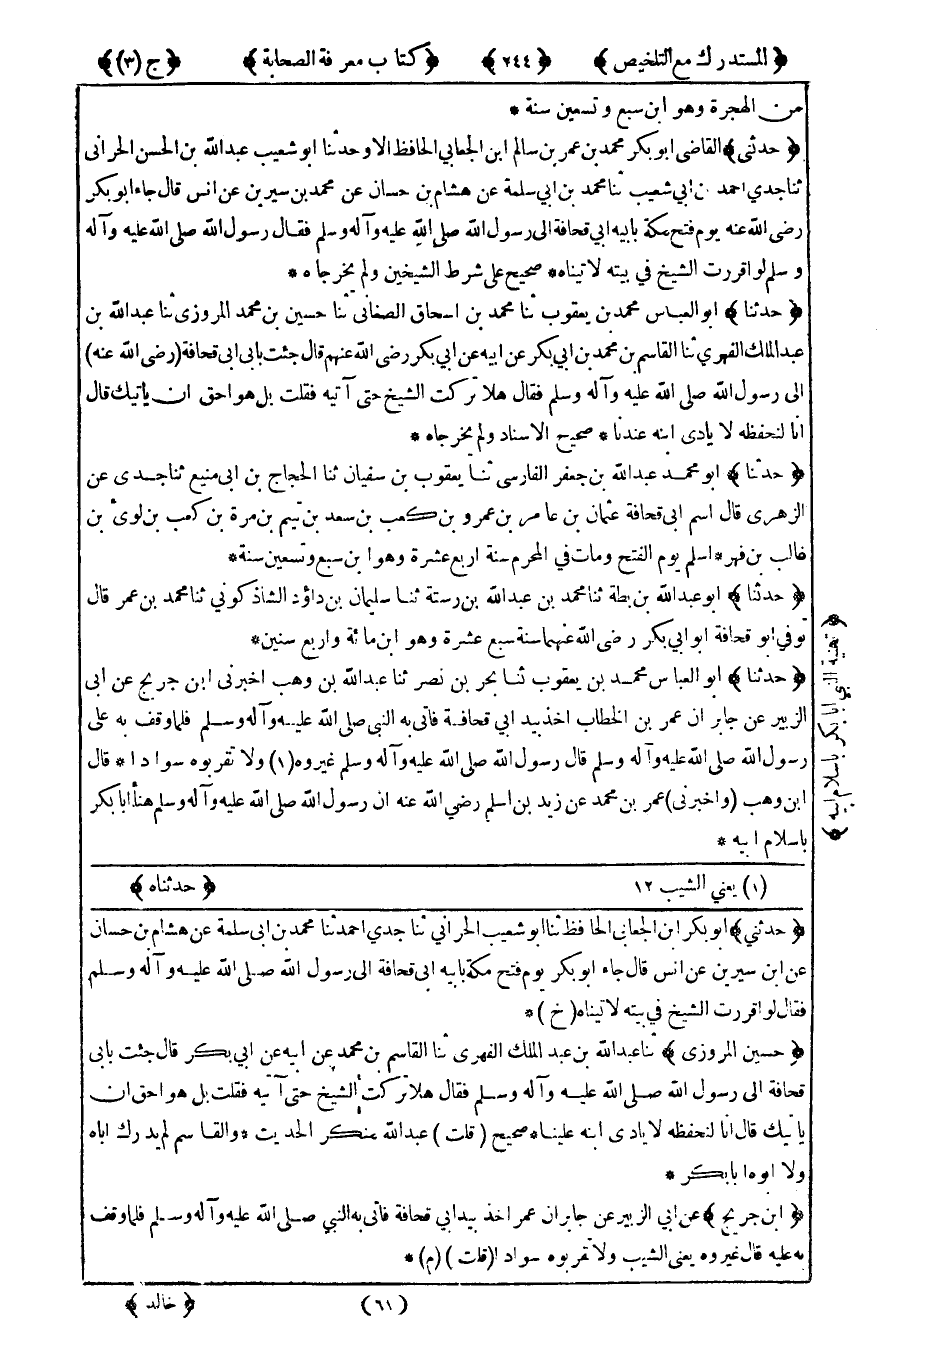 ﴿ المستدرك مع التلخيص ﴾ ﴿ ٢٤٤ ﴾ ﴿ كتاب معرفة الصحابة ﴾ ﴿ ج (٣) ﴾
من الهجرة وهو ابن سبع وتسعين سنة *
﴿ حدثني ﴾ القاضي ابو بكر محمد بن عمر بن سالم ابن الجعابي الحافظ الاوحد ثنا ابو شعيب عبدالله بن الحسن الحراني
ثنا جدي احمد بن ابي شعيب ثنا محمد بن ابي سلمة عن هشام بن حسان عن محمد بن سيرين عن انس قال جاء ابو بكر
رضى الله عنه يوم فتح مكة بابيه ابي قحافة الى رسول الله صلى الله عليه وآله وسلم فقال رسول الله صلى الله عليه وآله
وسلم لو اقررت الشيخ في بيته لاتيناه * صحيح على شرط الشيخين ولم يخرجاه *
﴿ حدثنا ﴾ ابو العباس محمد بن يعقوب ثنا محمد بن اسحاق الصغانى ثنا حسين بن محمد المروزى ثنا عبدالله بن
عبد الملك الفهري ثنا القاسم بن محمد بن ابي بكر عن ابيه عن ابي بكر رضى الله عنهم قال جئت بابى ابى قحافة (رضى الله عنه)
الى رسول الله صلى الله عليه وآله وسلم فقال هلا تركت الشيخ حتى آتيه فقلت بل هو احق ان ياتيك قال
انا لنحفظه لا يادى ابنه عندنا * صحيح الاسناد ولم يخرجاه *
﴿ حدثنا ﴾ ابو محمد عبدالله بن جعفر الفارسى ثنا يعقوب بن سفيان ثنا الحجاج بن ابى منيع ثنا جدى عن
الزهرى قال اسم ابى قحافة عثمان بن عامر بن عمرو بن كعب بن سعد بن تيم بن مرة بن كعب بن لوىء بن
غالب بن فهر * اسلم يوم الفتح ومات في المحرم سنة اربع عشرة وهو ابن سبع وتسعين سنة *
﴿ حدثنا ﴾ ابو عبدالله بن بطة ثنا محمد بن عبدالله بن رستة ثنا سليمان بن داؤد الشاذكوني ثنا محمد بن عمر قال
توفي ابو قحافة ابو ابي بكر رضى الله عنهما سنة سبع عشرة وهو ابن مائة واربع سنين *
﴿ حدثنا ﴾ ابو العباس محمد بن يعقوب ثنا بحر بن نصر ثنا عبدالله بن وهب اخبرنى ابن جريج عن ابى
الزبير عن جابر ان عمر بن الخطاب اخذ بيد ابي قحافة فاتى به النبي صلى الله عليه وآله وسلم فلما وقف به على
رسول الله صلى الله عليه وآله وسلم قال رسول الله صلى الله عليه وآله وسلم غيروه (١) ولا تقربوه سوادا * قال
ابن وهب (واخبرنى) عمر بن محمد عن زيد بن اسلم رضي الله عنه ان رسول الله صلى الله عليه وآله وسلم هنأ ابا بكر
باسلام ابيه *
﴿ تهنية النبي ابا بكر باسلام ابيه ﴾
(١) يعني الشيب ١٢ ﴿ حدثناه ﴾
﴿ حدثني ﴾ ابو بكر ابن الجعابى الحافظ ثنا ابو شعيب الحراني ثنا جدي احمد ثنا محمد بن ابى سلمة عن هشام بن حسان
عن ابن سيرين عن انس قال جاء ابو بكر يوم فتح مكة بابيه ابى قحافة الى رسول الله صلى الله عليه وآله وسلم
فقال لو اقررت الشيخ في بيته لاتيناه ( خ ) *
﴿ حسين المروزى ﴾ ثنا عبدالله بن عبد الملك الفهرى ثنا القاسم بن محمد عن ابيه عن ابي بكر قال جئت بابى
قحافة الى رسول الله صلى الله عليه وآله وسلم فقال هلا تركت الشيخ حتى آتيه فقلت بل هو احق ان
ياتيك قال انا لنحفظه لا يادى ابنه علينا * صحيح ( قلت ) عبدالله منكر الحديث * والقاسم لم يدرك اباه
ولا ابوه ابا بكر *
﴿ ابن جريج ﴾ عن ابي الزبير عن جابر ان عمر اخذ بيد ابي قحافة فاتى به النبي صلى الله عليه وآله وسلم فلما وقف
به عليه قال غيروه يعنى الشيب ولا تقربوه سوادا (قلت ) (م) *
(٦١) ﴿ خالد ﴾